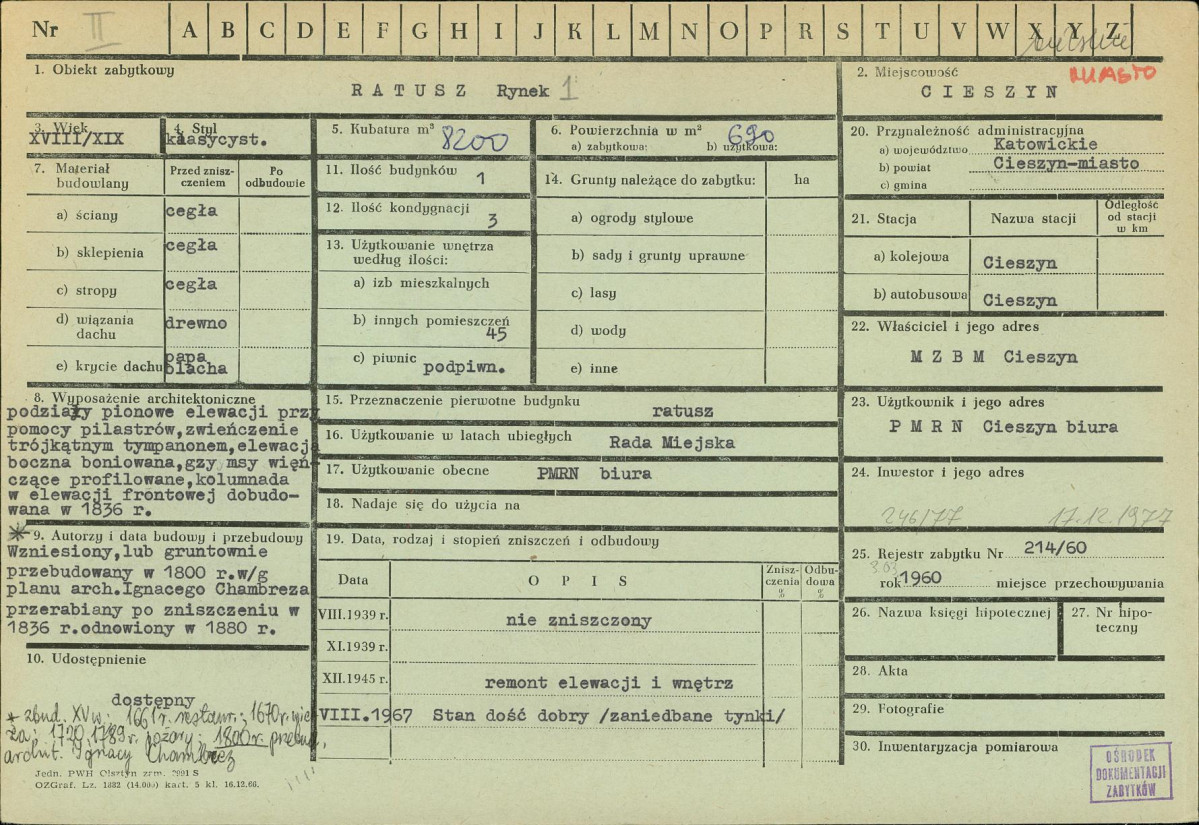 Nr II A B C D E F G H I J K L M N O P R S T U V W X Y Z
1. Obiekt zabytkowy
RATUSZ Rynek 1
2. Miejscowość
MIASTO
CIESZYN
3. Wiek
XVIII/XIX
4. Styl
klasycyst.
5. Kubatura m³ 8200
6. Powierzchnia w m² 690
a) zabytkowa: b) użytkowa:
7. Materiał budowlany
Przed zniszczeniem
Po odbudowie
a) ściany cegła
b) sklepienia cegła
c) stropy cegła
d) wiązania dachu drewno
e) krycie dachu papa blacha
11. Ilość budynków 1
12. Ilość kondygnacji 3
13. Użytkowanie wnętrza
według ilości:
a) izb mieszkalnych
b) innych pomieszczeń 45
c) piwnic podpiwn.
14. Grunty należące do zabytku: ha
a) ogrody stylowe
b) sady i grunty uprawne
c) lasy
d) wody
e) inne
20. Przynależność administracyjna
a) województwo Katowickie
b) powiat Cieszyn-miasto
c) gmina
21. Stacja Nazwa stacji Odległość od stacji w km
a) kolejowa Cieszyn
b) autobusowa Cieszyn
22. Właściciel i jego adres
M Z B M Cieszyn
8. Wyposażenie architektoniczne
podziały pionowe elewacji przy
pomocy pilastrów,zwieńczenie
trójkątnym tympanonem,elewacja
boczna boniowana,gzy msy wień-
czące profilowane,kolumnada
w elewacji frontowej dobudo-
wana w 1836 r.
* 9. Autorzy i data budowy i przebudowy
Wzniesiony,lub gruntownie
przebudowany w 1800 r.w/g
planu arch.Ignacego Chambreza
przerabiany po zniszczeniu w
1836 r.odnowiony w 1880 r.
10. Udostępnienie
dostępny
* zbud. XV w.; 1661 r. restaur.; 1670 r. wie-
ża; 1720, 1789 r. pożary; 1800 r. przebud.,
archit. Ignacy Chambrez
Jedn. PWH Olsztyn zam. 2991 S
OZGraf. Lz. 1882 (14.000) kart. 5 kl. 16.12.66.
15. Przeznaczenie pierwotne budynku ratusz
16. Użytkowanie w latach ubiegłych Rada Miejska
17. Użytkowanie obecne PMRN biura
18. Nadaje się do użycia na
19. Data, rodzaj i stopień zniszczeń i odbudowy
Data OPIS Zniszczenia % Odbudowa %
VIII.1939 r. nie zniszczony
XI.1939 r.
XII.1945 r. remont elewacji i wnętrz
VIII.1967 Stan dość dobry /zaniedbane tynki/
23. Użytkownik i jego adres
P M R N Cieszyn biura
24. Inwestor i jego adres
246/77 17.12.1977
25. Rejestr zabytku Nr 214/60
3.03
rok 1960 miejsce przechowywania
26. Nazwa księgi hipotecznej
27. Nr hipoteczny
28. Akta
29. Fotografie
30. Inwentaryzacja pomiarowa
OŚRODEK
DOKUMENTACJI
ZABYTKÓW